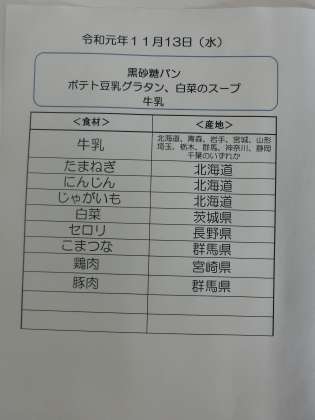 令和元年11月13日（水）
黒砂糖パン
ポテト豆乳グラタン、白菜のスープ
牛乳
＜食材＞ ＜産地＞
牛乳 北海道、青森、岩手、宮城、山形
埼玉、栃木、群馬、神奈川、静岡
千葉のいずれか
たまねぎ 北海道
にんじん 北海道
じゃがいも 北海道
白菜 茨城県
セロリ 長野県
こまつな 群馬県
鶏肉 宮崎県
豚肉 群馬県